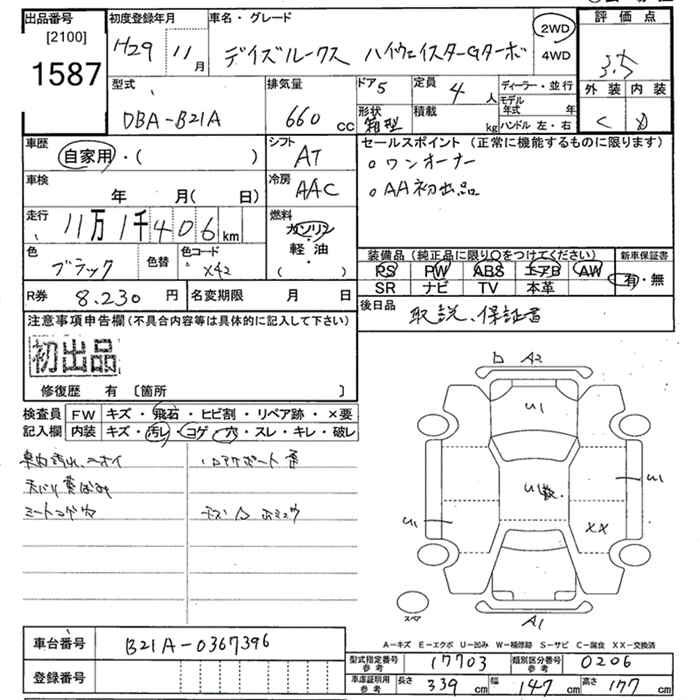 出品番号
[2100]
1587
初度登録年月
H29 11月
車名・グレード
デイズルークス ハイウェイスターGターボ
2WD
4WD
評価点
3.5
外装 内装
C D
型式
DBA-B21A
排気量
660 cc
ドア 5
形状
箱型
定員 4 人
積載 kg
ディーラー・並行
モデル年式 年
ハンドル 左・右
車歴
自家用・( )
シフト
AT
セールスポイント (正常に機能するものに限ります)
○ワンオーナー
○AA初出品
車検
年 月( 日)
冷房
AAC
走行
11万1千406km
燃料
ガソリン
軽・油
( )
色
ブラック
色替
色コード
X42
装備品 (純正品に限り○をつけてください)
PS PW ABS エアB AW
SR ナビ TV 本革
新車保証書
有・無
R券 8.230 円
名変期限 月 日
後日品
取説、保証書
注意事項申告欄(不具合内容等は具体的に記入して下さい)
初出品
修復歴 有 〔箇所 〕
検査員
記入欄
FW キズ・飛石・ヒビ割・リペア跡・×要
内装 キズ・汚レ・コゲ・穴・スレ・キレ・破レ
A2
U1
U1
U1
U1
XX
A1
スペア
A-キズ E-エクボ U-凹み W-補修跡 S-サビ C-腐食 XX-交換済
車台番号
B21A-0367396
登録番号
型式指定番号
参考
17703
類別区分番号
参考
0206
車庫証明用
参考
長さ 339 cm
幅 147 cm
高さ 177 cm